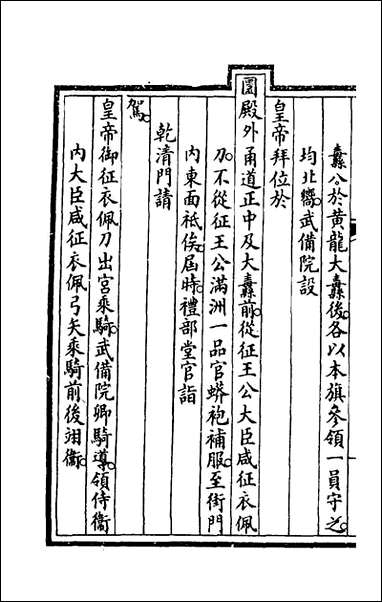 纛分於黄龍大纛後各以本旗參領一員守之
均北嚮武備院設
皇帝拜位於
圜殿外甬道正中及大纛前從征王公大臣咸征衣佩
刀不從征王公滿洲一品官蟒袍補服至街門
内東面祗俟屆時禮部堂官詣
乾清門請
駕
皇帝御征衣佩刀出宫乘騎武備院卿騎導領侍衞
内大臣咸征衣佩弓矢乘騎前後翊衞